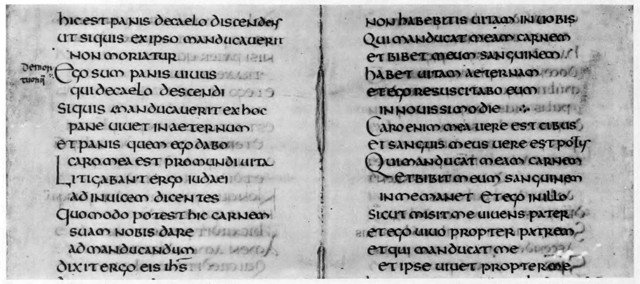 hic est panis de caelo discendens
ut siquis ex ipso manducauerit
non moriatur
Demor
tuorum
Ego sum panis uiuus
qui de caelo descendi
siquis manducauerit ex hoc
pane uiuet in aeternum
et panis quem ego dabo
caro mea est pro mundi uita
Litigabant ergo iudaei
ad inuicem dicentes
quomodo potest hic carnem
suam nobis dare
ad manducandum
dixit ergo eis ihs
non habebitis uitam in uobis
Qui manducat meam carnem
et bibet meum sanguinem
habet uitam aeternam
et ego resuscitabo eum
in nouissimo die
Caro enim mea uere est cibus
et sanguis meus uere est potus
Qui manducat meam carnem
et bibit meum sanguinem
in me manet et ego in illo
sicut misit me uiuens pater
et ego uiuo propter patrem
et qui manducat me
et ipse uiuet propter me